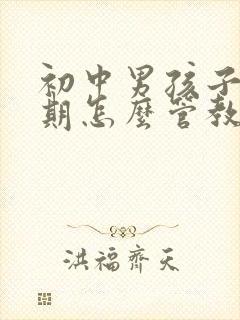 初中男孩子
期怎麼管教
洪福齊天